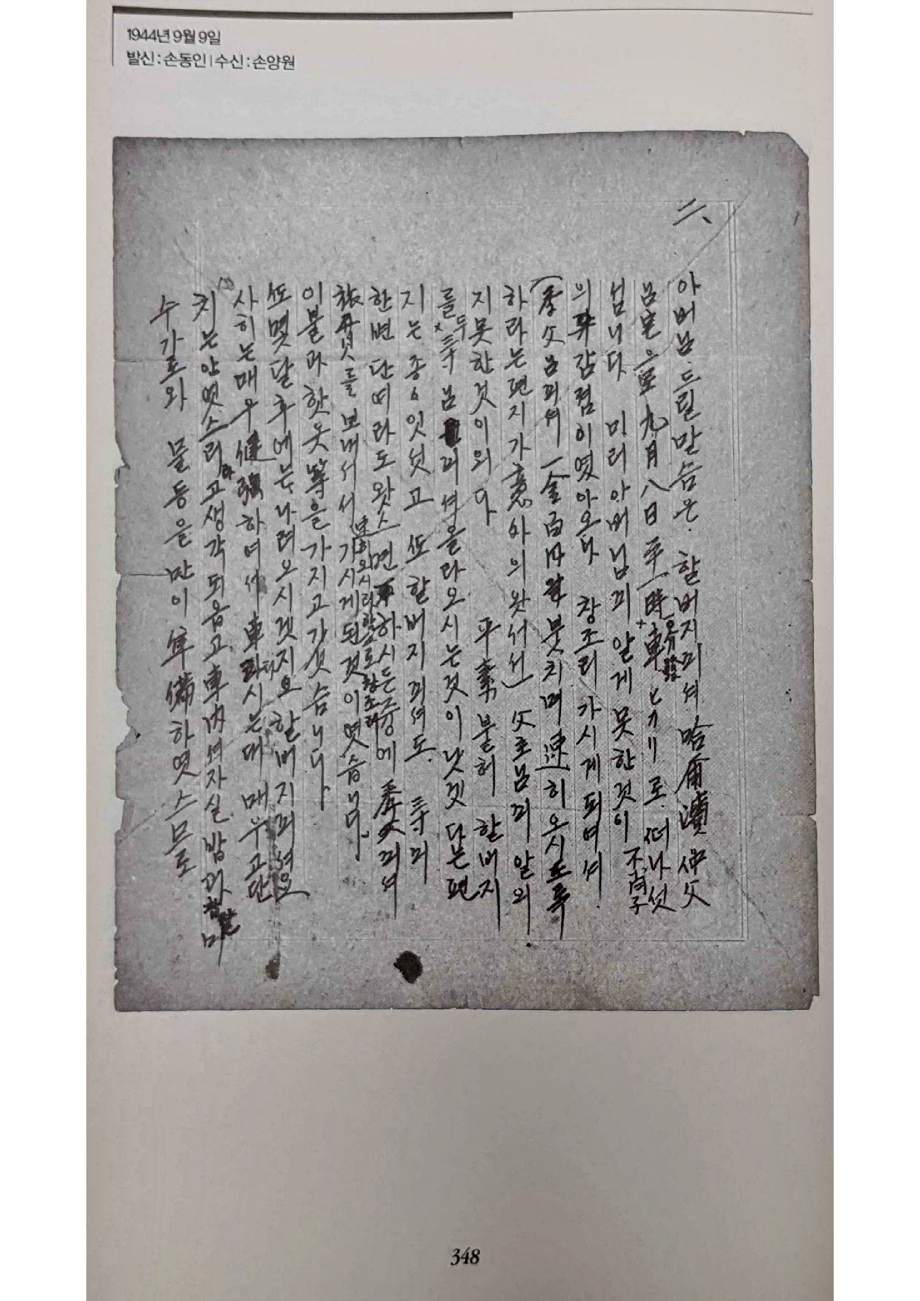 1944년 9월 9일
발신 : 손동인 | 수신 : 손양원
二、
아버님 드릴 말슴은. 할버지께셔 哈爾濱 仲父
님宅을 九月八日 午 一時 車 로 떠나섯
습니다 미리 아버님끠 알게 못한것이 不肖子
의 감렴이엿아오나 창조리 가시게 되며셔
(季父님끠셔 一金百 붓치며 速히 오시도록
하라는 편지가 意外의 왓서서) 父主님끠 알외
지 못한것이외다 平素붙허 할버지
를 두 님 끠셔 올라오시는 것이 낫겟다는 편
지는 종종 잇섯고 또 할버지끠셔도
한번 단여라도 왓스면 하시든 중에 季父끠셔
를 보내서서 가시게된것이엿습니다
이불과 핫옷 等을 가지고 갓습니다
또 몃달 후에는 나려오시겟지요 할버지끠셔요
사히는 매우 健强하며서 車 타시는대 매우 고단
치는 안엿스리라고 생각되옵고 車內셔 자실 밤
수가로와 물 등을 만이 準備하엿스므로
348